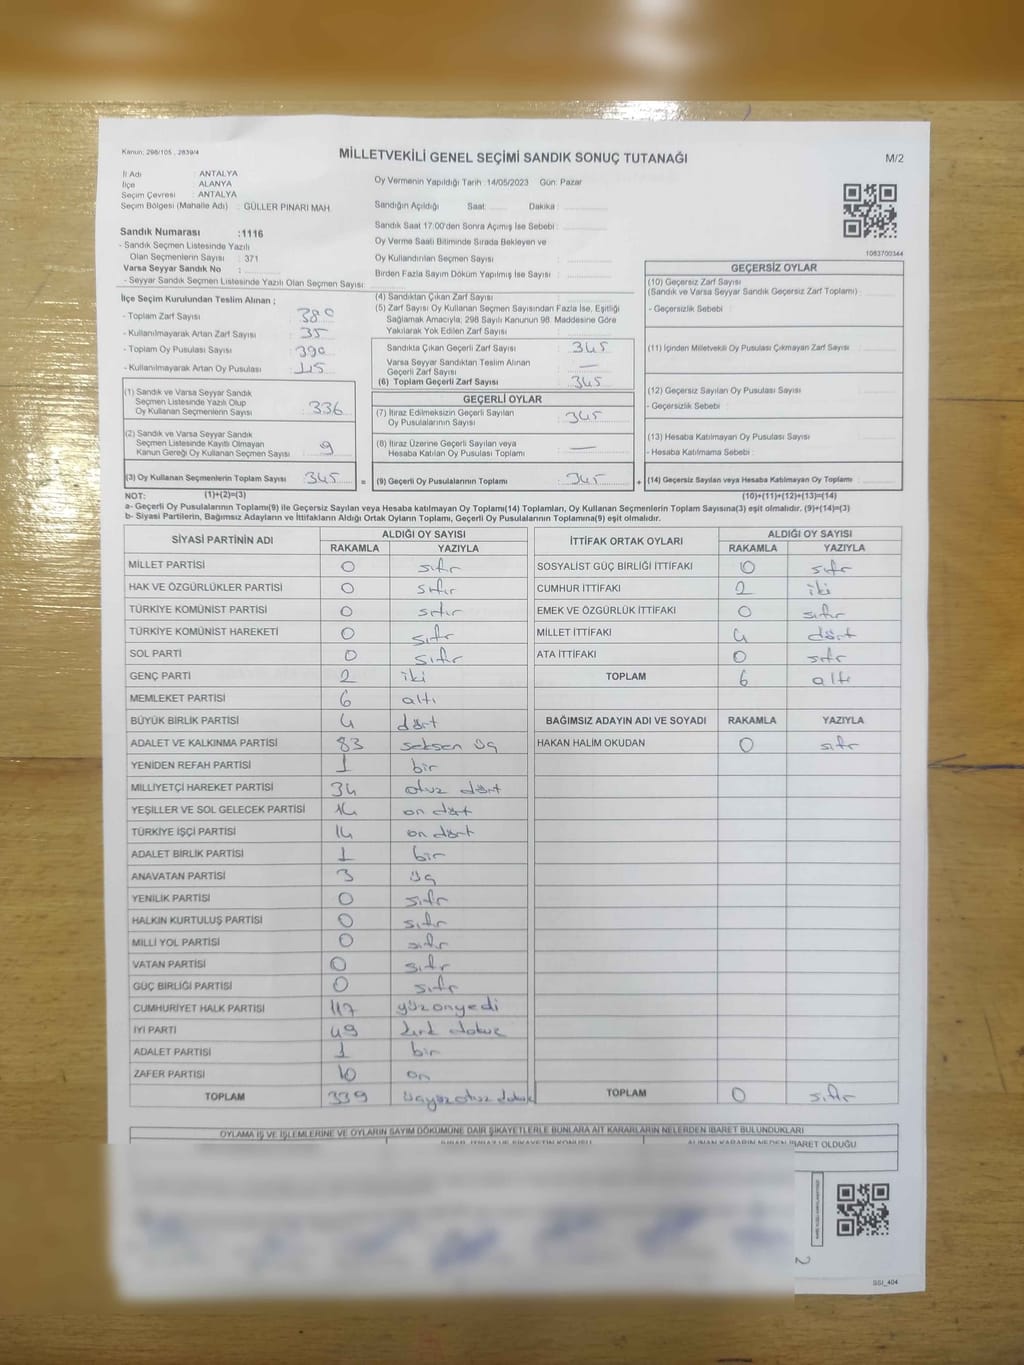 Kanun: 298/105 , 2839/4
MİLLETVEKİLİ GENEL SEÇİMİ SANDIK SONUÇ TUTANAĞI
M/2
İl Adı : ANTALYA
İlçe : ALANYA
Seçim Çevresi : ANTALYA
Seçim Bölgesi (Mahalle Adı) : GÜLLER PINARI MAH.
Oy Vermenin Yapıldığı Tarih :14/05/2023 Gün: Pazar
Sandığın Açıldığı Saat: Dakika :
Sandık Saat 17:00'den Sonra Açımış İse Sebebi :
Oy Verme Saati Bitiminde Sırada Bekleyen ve
Oy Kullandırılan Seçmen Sayısı :
Birden Fazla Sayım Döküm Yapılmış İse Sayısı :
1083700344
Sandık Numarası :1116
- Sandık Seçmen Listesinde Yazılı
Olan Seçmenlerin Sayısı : 371
Varsa Seyyar Sandık No :
- Seyyar Sandık Seçmen Listesinde Yazılı Olan Seçmen Sayısı:
İlçe Seçim Kurulundan Teslim Alınan ;
- Toplam Zarf Sayısı : 380
- Kullanılmayarak Artan Zarf Sayısı : 35
- Toplam Oy Pusulası Sayısı : 390
- Kullanılmayarak Artan Oy Pusulası : 45
(1) Sandık ve Varsa Seyyar Sandık
Seçmen Listesinde Yazılı Olup
Oy Kullanan Seçmenlerin Sayısı : 336
(2) Sandık ve Varsa Seyyar Sandık
Seçmen Listesinde Kayıtlı Olmayan
Kanun Gereği Oy Kullanan Seçmen Sayısı : 9
(3) Oy Kullanan Seçmenlerin Toplam Sayısı : 345
=
(4) Sandıktan Çıkan Zarf Sayısı :
(5) Zarf Sayısı Oy Kullanan Seçmen Sayısından Fazla İse, Eşitliği
Sağlamak Amacıyla, 298 Sayılı Kanunun 98. Maddesine Göre
Yakılarak Yok Edilen Zarf Sayısı :
Sandıkta Çıkan Geçerli Zarf Sayısı : 345
Varsa Seyyar Sandıktan Teslim Alınan
Geçerli Zarf Sayısı : —
(6) Toplam Geçerli Zarf Sayısı : 345
GEÇERLİ OYLAR
(7) İtiraz Edilmeksizin Geçerli Sayılan
Oy Pusulalarının Sayısı : 345
(8) İtiraz Üzerine Geçerli Sayılan veya
Hesaba Katılan Oy Pusulası Toplamı : —
(9) Geçerli Oy Pusulalarının Toplamı : 345
+
GEÇERSİZ OYLAR
(10) Geçersiz Zarf Sayısı
(Sandık ve Varsa Seyyar Sandık Geçersiz Zarf Toplamı) :
- Geçersizlik Sebebi :
(11) İçinden Milletvekili Oy Pusulası Çıkmayan Zarf Sayısı :
(12) Geçersiz Sayılan Oy Pusulası Sayısı :
- Geçersizlik Sebebi :
(13) Hesaba Katılmayan Oy Pusulası Sayısı :
- Hesaba Katılmama Sebebi :
(14) Geçersiz Sayılan veya Hesaba Katılmayan Oy Toplamı :
NOT: (1)+(2)=(3) (10)+(11)+(12)+(13)=(14)
a- Geçerli Oy Pusulalarının Toplamı(9) ile Geçersiz Sayılan veya Hesaba katılmayan Oy Toplamı(14) Toplamları, Oy Kullanan Seçmenlerin Toplam Sayısına(3) eşit olmalıdır. (9)+(14)=(3)
b- Siyasi Partilerin, Bağımsız Adayların ve İttifakların Aldığı Ortak Oyların Toplamı, Geçerli Oy Pusulalarının Toplamına(9) eşit olmalıdır.
SİYASİ PARTİNİN ADI ALDIĞI OY SAYISI
RAKAMLA YAZIYLA
MİLLET PARTİSİ 0 sıfır
HAK VE ÖZGÜRLÜKLER PARTİSİ 0 sıfır
TÜRKİYE KOMÜNİST PARTİSİ 0 sıfır
TÜRKİYE KOMÜNİST HAREKETİ 0 sıfır
SOL PARTİ 0 sıfır
GENÇ PARTİ 2 iki
MEMLEKET PARTİSİ 6 altı
BÜYÜK BİRLİK PARTİSİ 4 dört
ADALET VE KALKINMA PARTİSİ 83 seksen üç
YENİDEN REFAH PARTİSİ 1 bir
MİLLİYETÇİ HAREKET PARTİSİ 34 otuz dört
YEŞİLLER VE SOL GELECEK PARTİSİ 14 on dört
TÜRKİYE İŞÇİ PARTİSİ 14 on dört
ADALET BİRLİK PARTİSİ 1 bir
ANAVATAN PARTİSİ 3 üç
YENİLİK PARTİSİ 0 sıfır
HALKIN KURTULUŞ PARTİSİ 0 sıfır
MİLLİ YOL PARTİSİ 0 sıfır
VATAN PARTİSİ 0 sıfır
GÜÇ BİRLİĞİ PARTİSİ 0 sıfır
CUMHURİYET HALK PARTİSİ 117 yüzonyedi
İYİ PARTİ 49 kırk dokuz
ADALET PARTİSİ 1 bir
ZAFER PARTİSİ 10 on
TOPLAM 339 üçyüzotuz dokuz
İTTİFAK ORTAK OYLARI ALDIĞI OY SAYISI
RAKAMLA YAZIYLA
SOSYALİST GÜÇ BİRLİĞİ İTTİFAKI 0 sıfır
CUMHUR İTTİFAKI 2 iki
EMEK VE ÖZGÜRLÜK İTTİFAKI 0 sıfır
MİLLET İTTİFAKI 4 dört
ATA İTTİFAKI 0 sıfır
TOPLAM 6 altı
BAĞIMSIZ ADAYIN ADI VE SOYADI RAKAMLA YAZIYLA
HAKAN HALİM OKUDAN 0 sıfır
TOPLAM 0 sıfır
OYLAMA İŞ VE İŞLEMLERİNE VE OYLARIN SAYIM DÖKÜMÜNE DAİR ŞİKAYETLERLE BUNLARA AİT KARARLARIN NELERDEN İBARET BULUNDUKLARI
ALINAN KARARIN NEDEN İBARET OLDUĞU
2
SSI_404